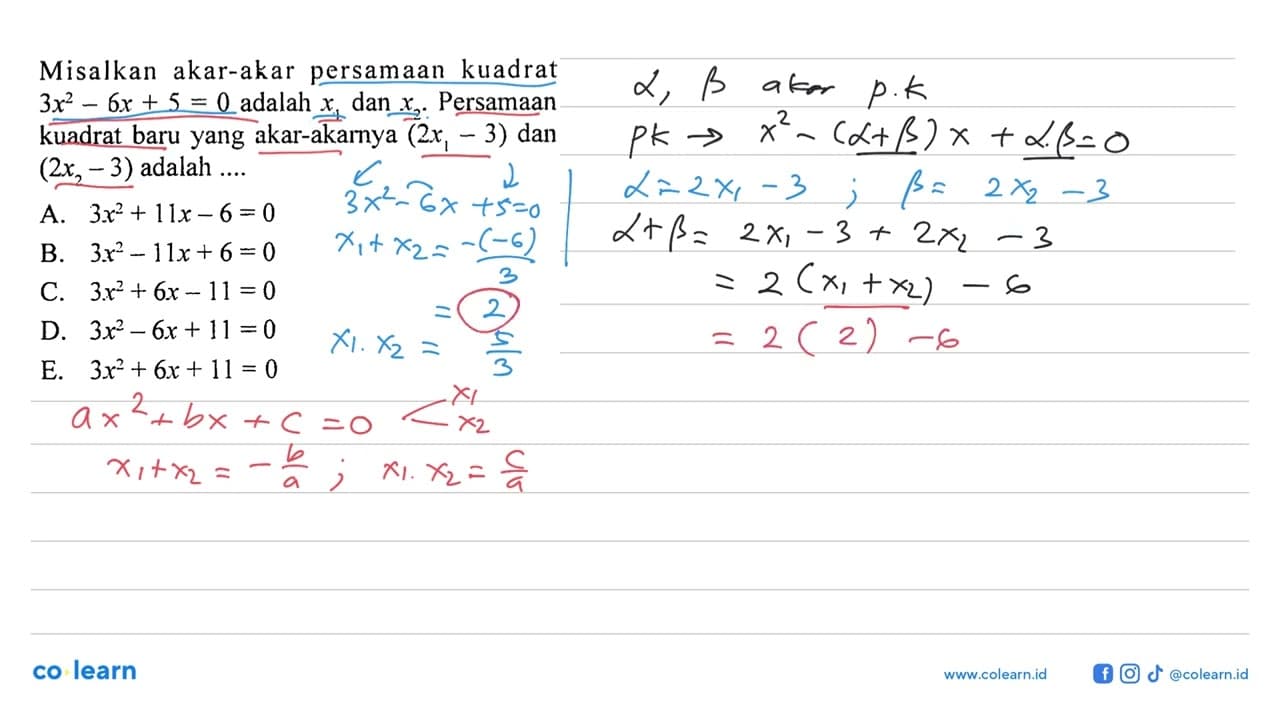 Misalkan akar-akar persamaan kuadrat
3x² – 6x + 5 = 0 adalah x₁ dan x₂. Persamaan
kuadrat baru yang akar-akarnya (2x₁ – 3) dan
(2x₂ – 3) adalah ....
A. 3x² + 11x – 6 = 0
B. 3x² – 11x + 6 = 0
C. 3x² + 6x – 11 = 0
D. 3x² – 6x + 11 = 0
E. 3x² + 6x + 11 = 0
3x² – 6x + 5 = 0
x₁ + x₂ = -(-6)/3
= 2
x₁ . x₂ = 5/3
ax² + bx + c = 0 < x₁ x₂
x₁ + x₂ = - b/a ; x₁ . x₂ = c/a
α, β akar p.k
pk → x² – (α+β) x + α.β = 0
α = 2x₁ – 3 ; β = 2x₂ – 3
α + β = 2x₁ – 3 + 2x₂ – 3
= 2 (x₁ + x₂) – 6
= 2 (2) – 6
co learn
www.colearn.id
@colearn.id